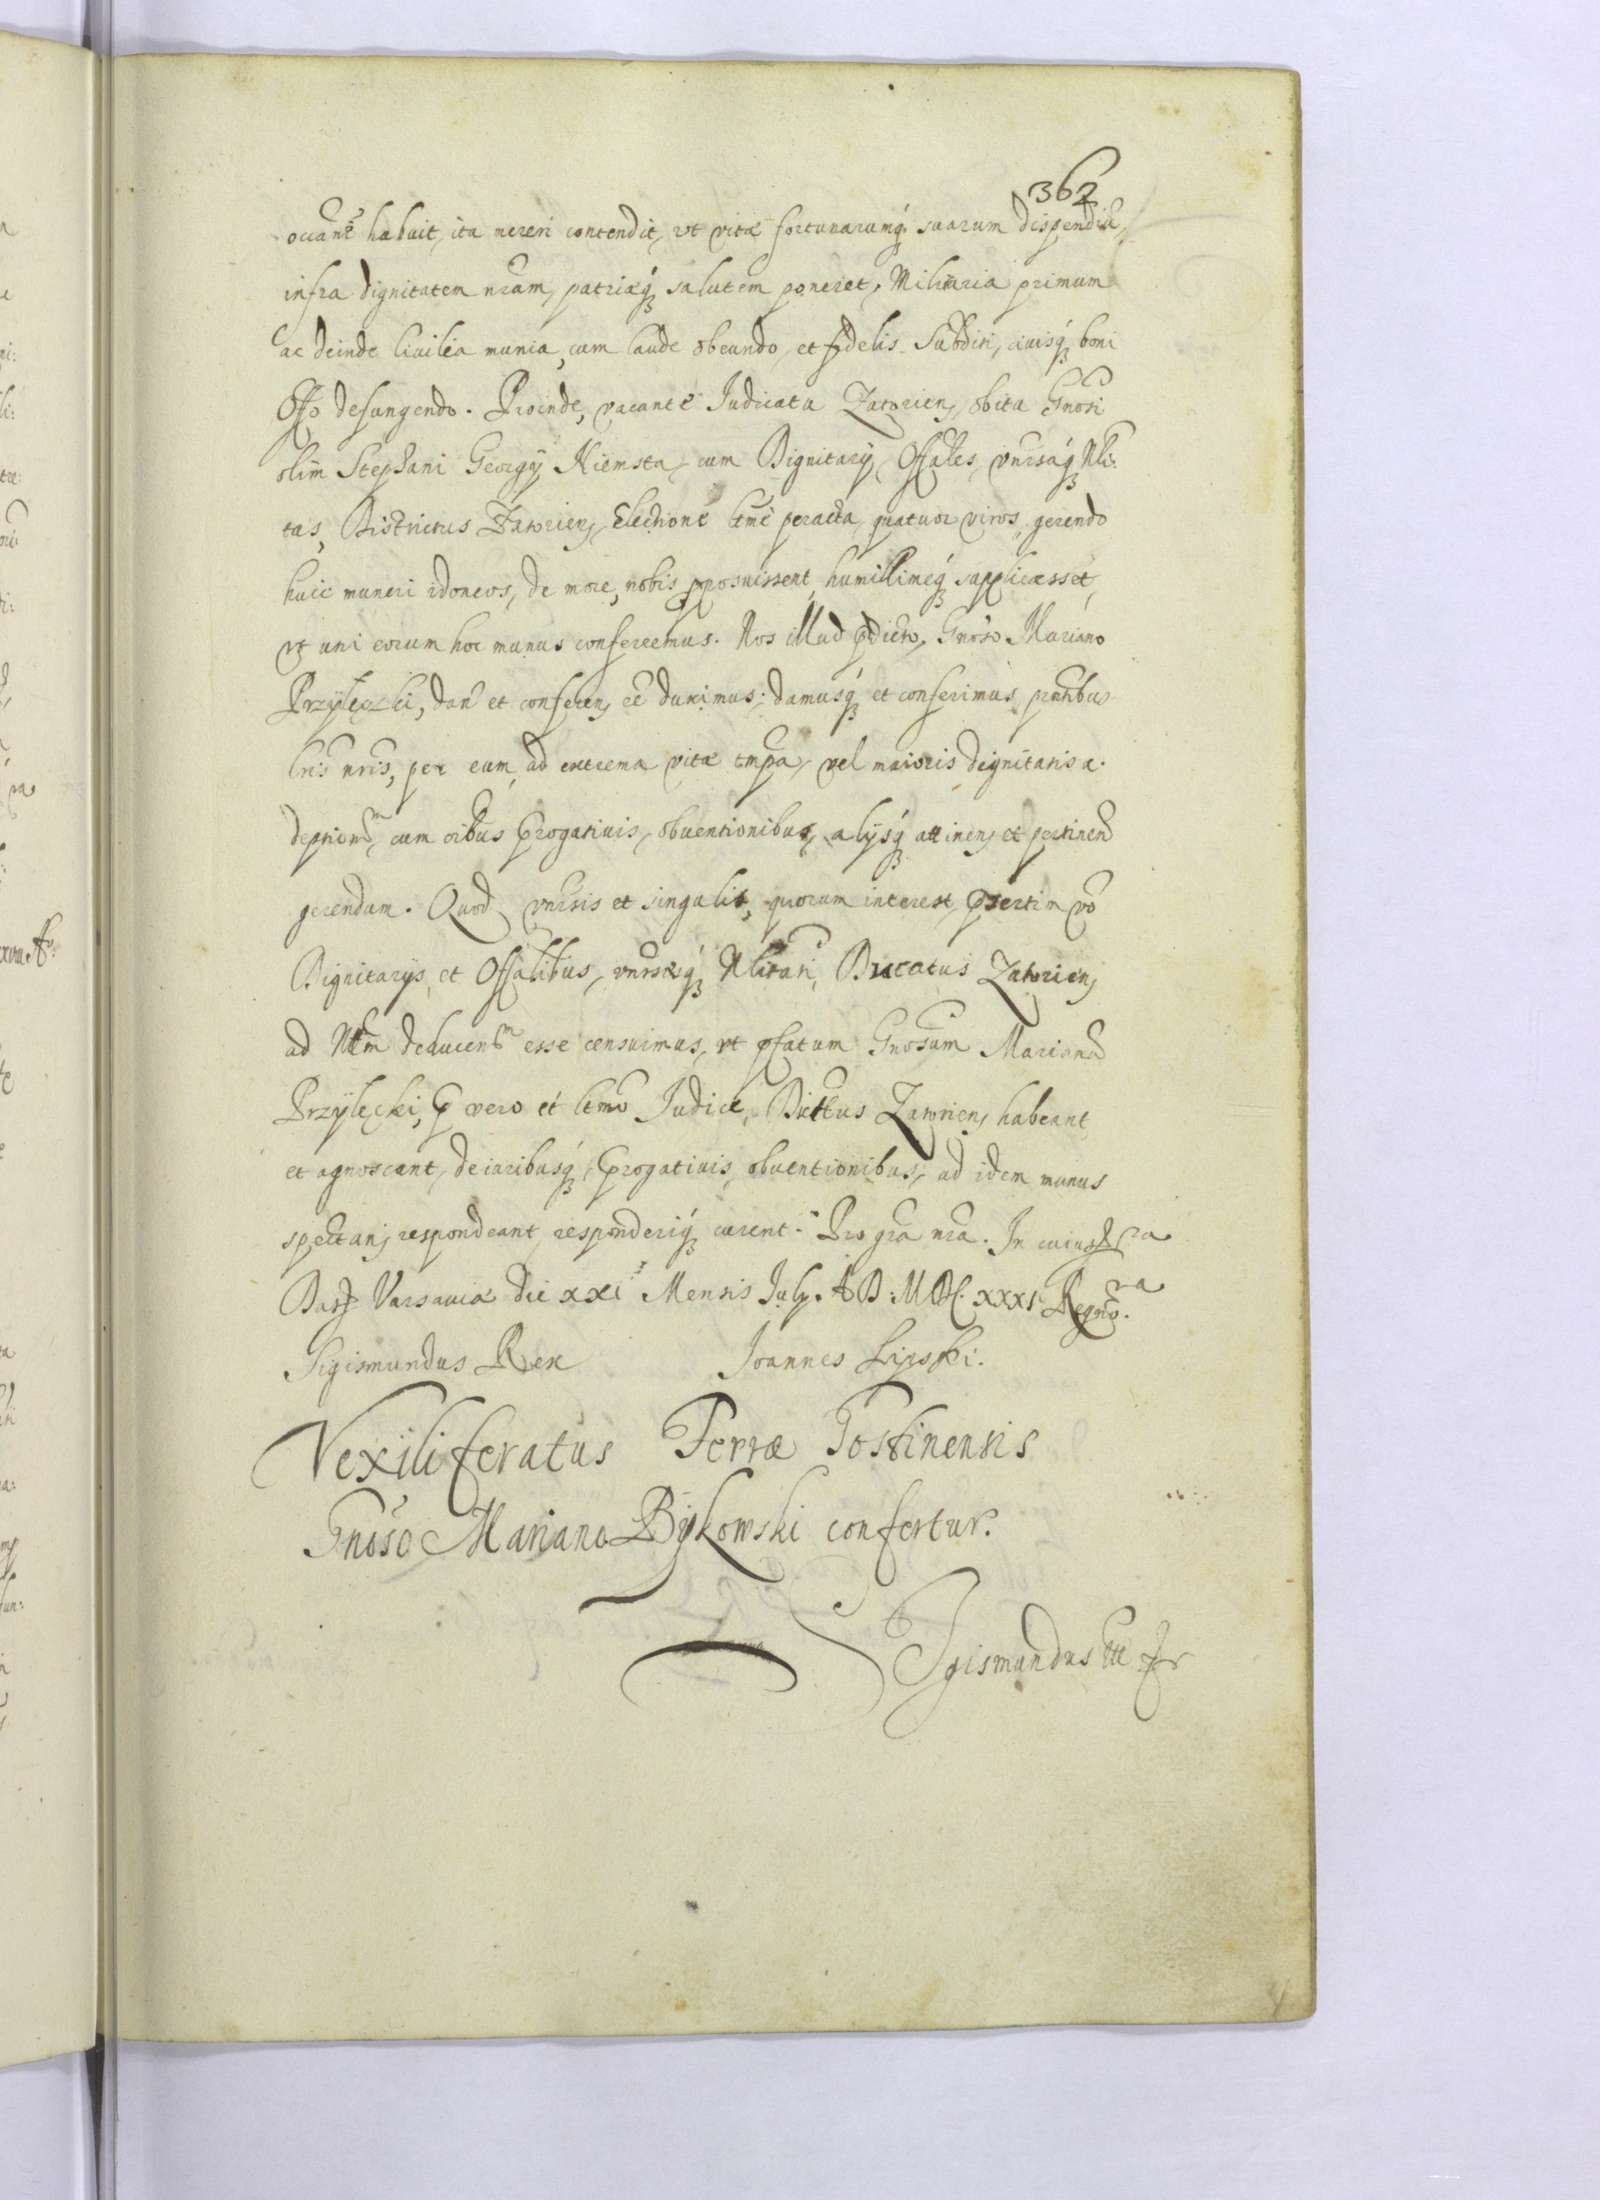 362
occãne habuit, ita mereri contendit, vt vitæ fortunarumq; suarum dispendiũ,
infra dignitatem nrãm, patriæq; salutem poneret, Militaria primum
ac deinde Ciuilia munia, cum laude obeundo, et fidelis Subditi, ciuisq; boni
Offo defungendo. Proinde, vacante Iudicatu Zatorien, obitu Gnosi
olim Stephani Georgij Niemsta, cum Dignitarij, Offales, vnrsaq; Nli:
tas, Districtus Zatorien, Electione ltme peracta, quatuor viros, gerendo
huic muneri idoneos, de more, nobis pposuissent, humillimeq; supplicassẽt,
vt uni eorum hoc munus conferremus. Nos illud pdicto, Gnoso Mariano
Przyłęczki, dan̄ et conferen̄ eẽ duximus; damusq; et conferimus pñtibus
lris nris, per eum, ad extrema vitæ tmpa, vel maioris dignitatis a:
deptionem, cum oibus Progatiuis, obuentionibus, alijsq; attinen et pertinen
gerendum. Quod vnrsis et singulis, quorum interest, Psertim vo
Dignitarijs, et Offalibus, vnrsæq; Nlitati, Ducatus Zatorien
ad Ntm deducend esse censuimus, vt pfatum Gnosum Marianũ
Przyłęcki, p vero et ltmo Iudice, Dictus Zatorien, habeant
et agnoscant, de iuribusq; Progatiuis, obuentionibus, ad idem munus
spectan, respondeant, responderiq; curent. Pro gra nra. In cuius
Dat Varsauiæ die xxi Mensis Iuly. A D: MDC. xxxi Regno.
Sigismundus Rex Ioannes Lipski.
Vexiliferatus Terræ Gostinensis
Gnoso Mariano Bykowski confertur.
Sigismundus III